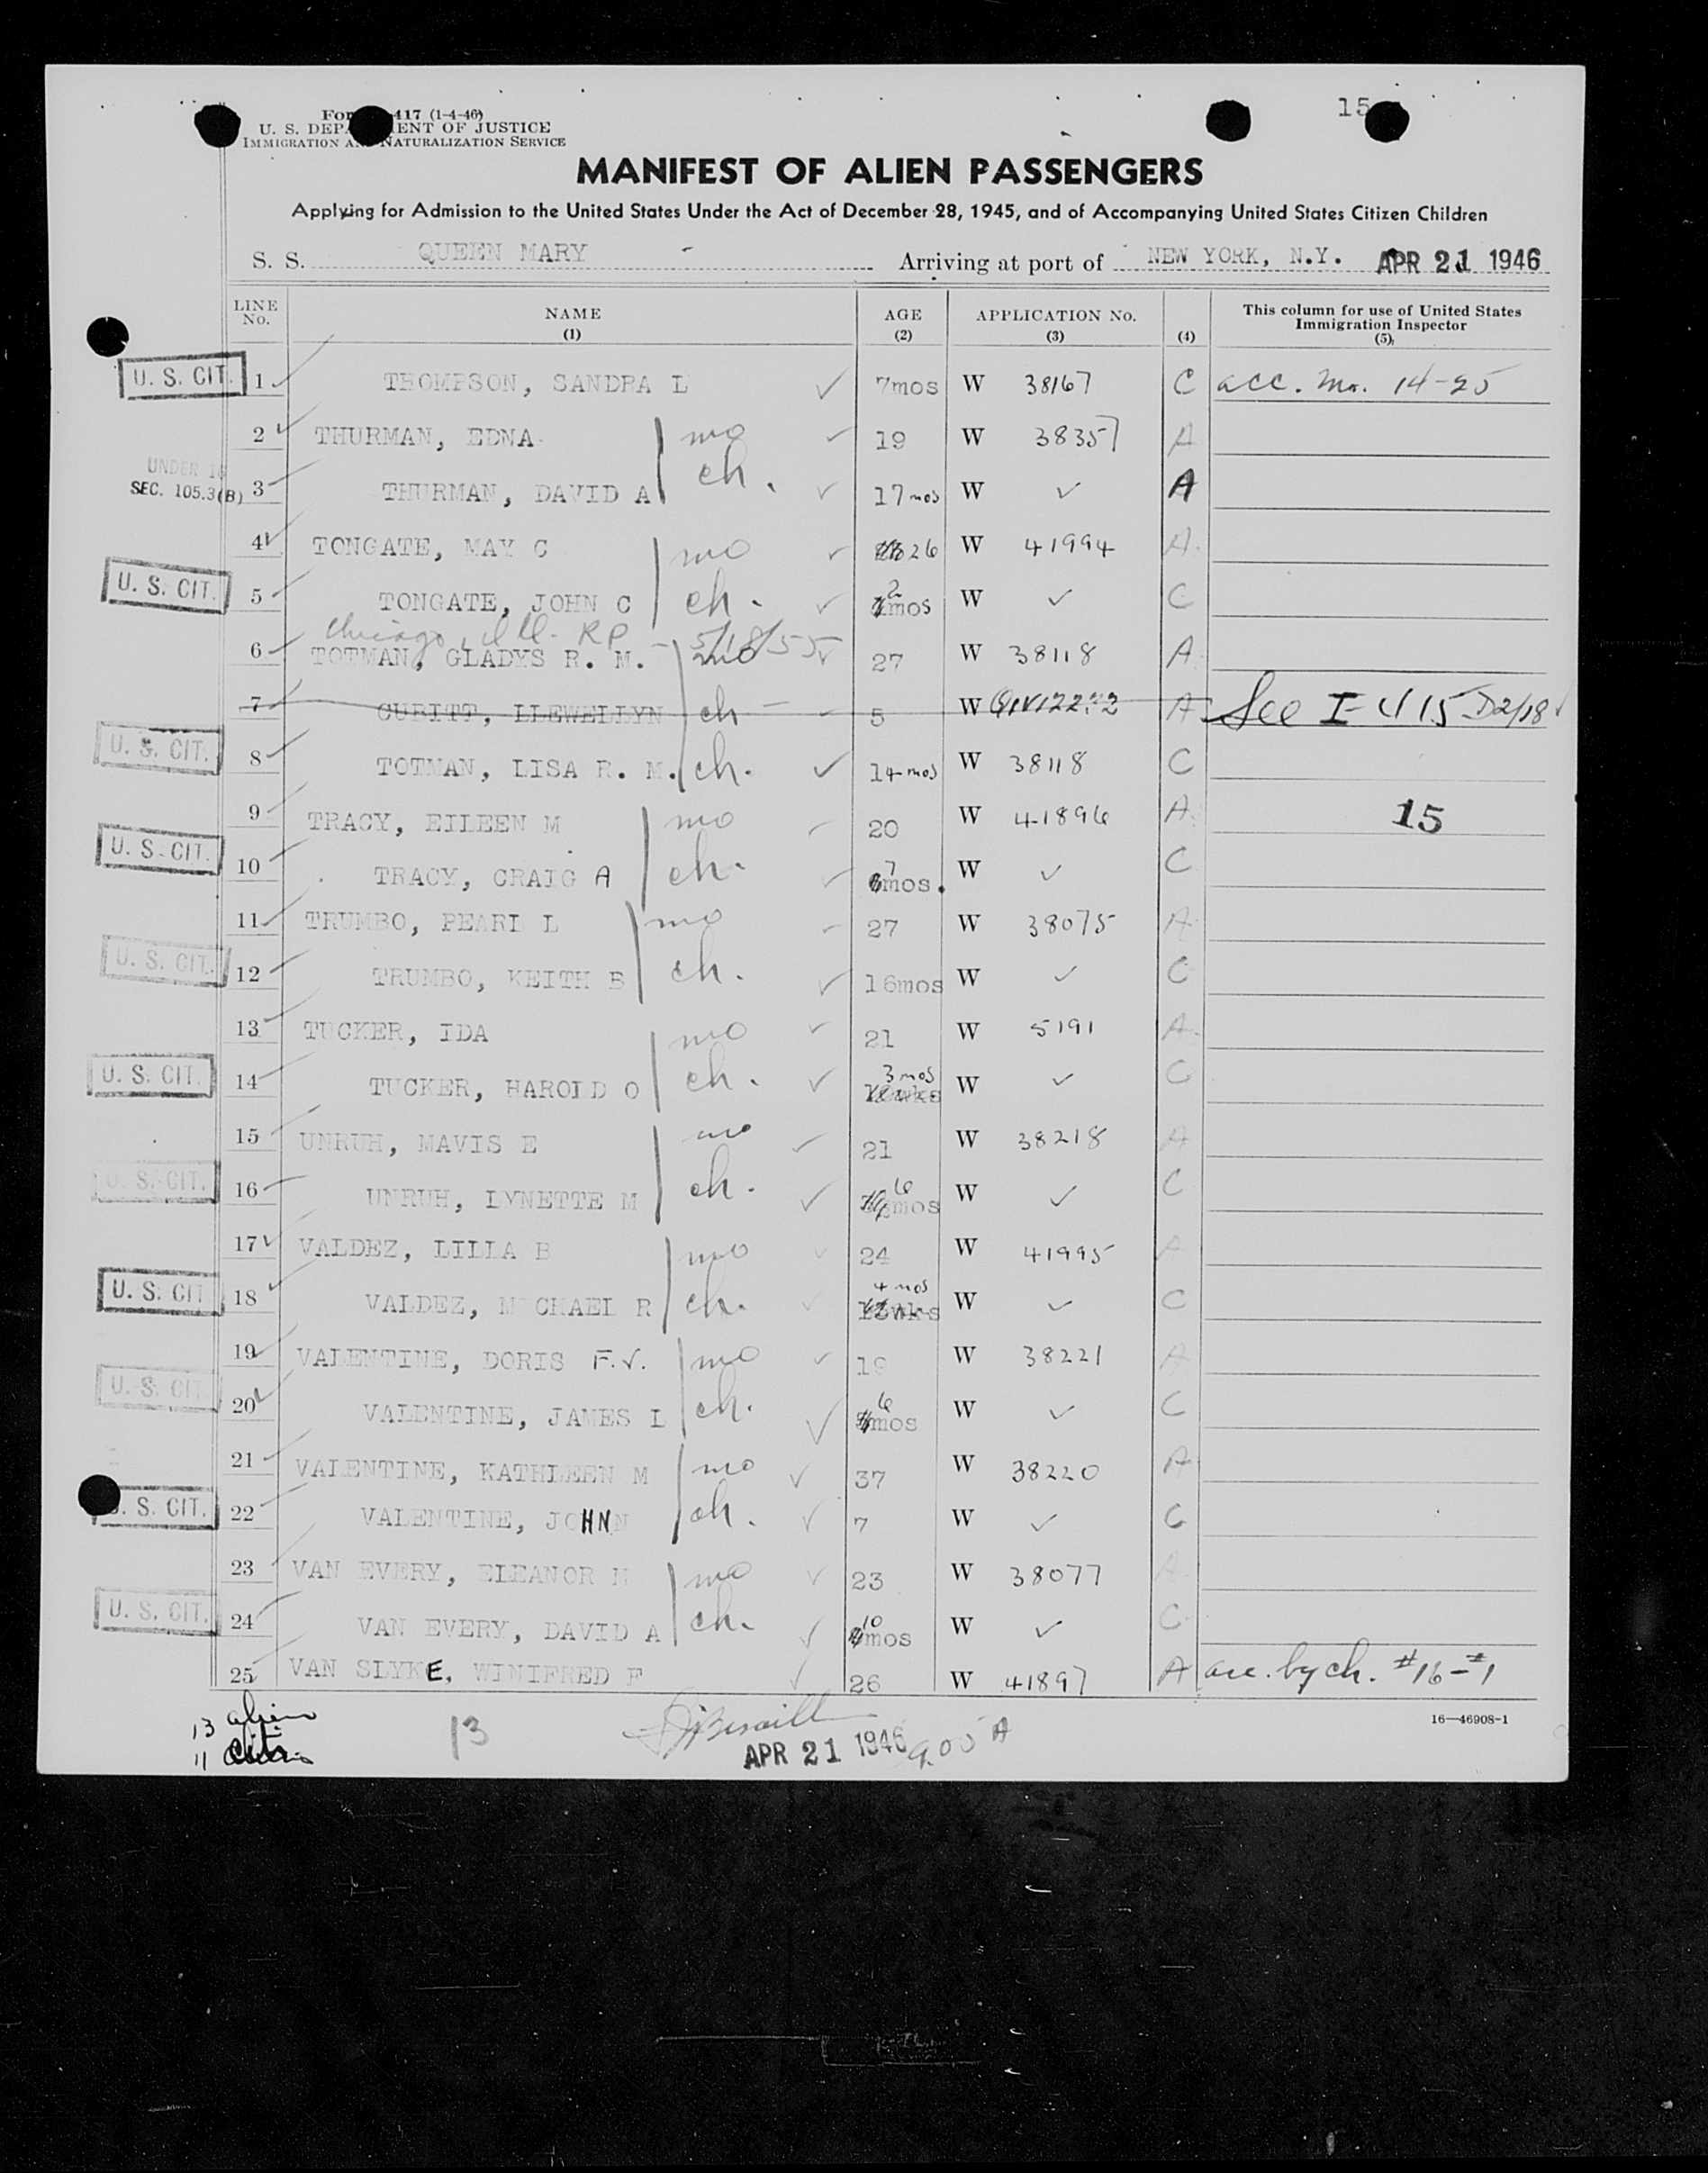 15
417 (1-4-46)
U. S. DEP MENT OF JUSTICE
IMMIGRATION A NATURALIZATION SERVICE
MANIFEST OF ALIEN PASSENGERS
Applying for Admission to the United States Under the Act of December 28, 1945, and of Accompanying United States Citizen Children
S. S. QUEEN MARY Arriving at port of NEW YORK, N.Y. APR 21 1946
LINE No. NAME (1) AGE (2) APPLICATION No. (3) (4) This column for use of United States Immigration Inspector (5)
U. S. CIT. 1 THOMPSON, SANDRA L ✓ 7mos W 38167 C acc. mo. 14-25
2 THURMAN, EDNA mo ✓ 19 W 38357 A
UNDER 16 SEC. 105.3(B) 3 THURMAN, DAVID A ch. ✓ 17 mos W ✓ A
4 TONGATE, MAY C mo ✓ 26 W 41994 A
U. S. CIT. 5 TONGATE, JOHN C ch. ✓ 2 mos W ✓ C
Chicago, Ill. RP - 5/18/55
6 TOTMAN, GLADYS R. M. mo ✓ 27 W 38118 A
7 CUBITT, LLEWELLYN ch 5 W A See I-415
U. S. CIT. 8 TOTMAN, LISA R. M. ch. ✓ 14 mos W 38118 C
9 TRACY, EILEEN M mo 20 W 41896 A 15
U. S. CIT. 10 TRACY, CRAIG A ch. ✓ 7 mos. W ✓ C
11 TRUMBO, PEARL L mo 27 W 38075 A
U. S. CIT. 12 TRUMBO, KEITH B ch. ✓ 16mos W ✓ C
13 TUCKER, IDA mo ✓ 21 W 5191 A
U. S. CIT. 14 TUCKER, HAROLD O ch. ✓ 3 mos W ✓ C
15 UNRUH, MAVIS E mo ✓ 21 W 38218 A
U. S. CIT. 16 UNRUH, LYNETTE M ch. ✓ 6 mos W ✓ C
17 VALDEZ, LILLA B mo ✓ 24 W 41995 A
U. S. CIT 18 VALDEZ, MICHAEL R ch. ✓ 4 mos W ✓ C
19 VALENTINE, DORIS F.V. mo ✓ 19 W 38221 A
U. S. CIT 20 VALENTINE, JAMES L ch. ✓ 6 mos W ✓ C
21 VALENTINE, KATHLEEN M mo ✓ 37 W 38220 A
U. S. CIT. 22 VALENTINE, JOHN ch. ✓ 7 W ✓ C
23 VAN EVERY, ELEANOR M mo ✓ 23 W 38077 A
U. S. CIT. 24 VAN EVERY, DAVID A ch. ✓ 10 mos W ✓ C
25 VAN SLYKE, WINIFRED F ✓ 26 W 41897 A acc. by ch. #16-#1
16—46908-1
13 alien
11 Cit.
13
APR 21 1946 9.00 A